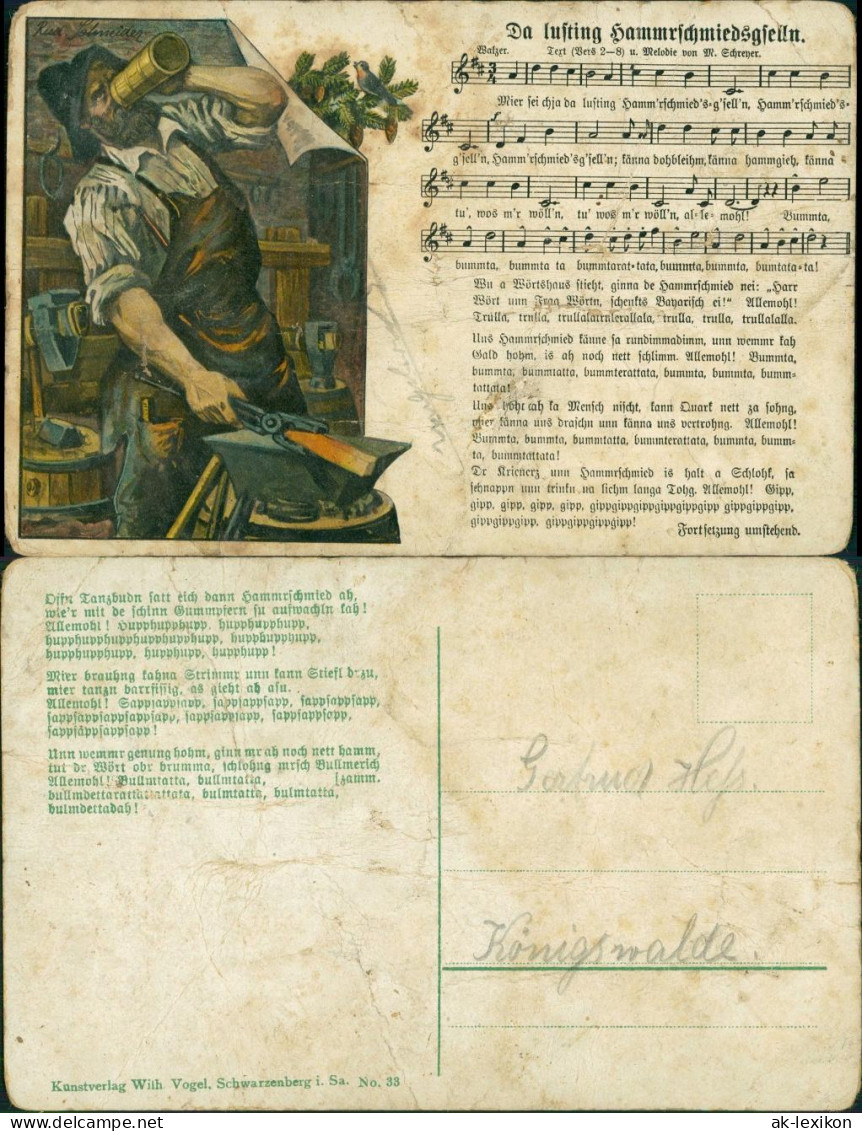 Rud. Schneider
Da lusting Hammrschmiedsgselln.
Walzer. Text (Vers 2—8) u. Melodie von M. Schreyer.
Mier sei chja da lusting Hamm'rschmied's-g'sell'n, Hamm'rschmied's-
g'sell'n, Hamm'rschmied'sg'sell'n; känna dohbleihm, känna hammgieh, känna
tu', wos m'r wöll'n, tu' wos m'r wöll'n, al-le-mohl! Bummta,
bummta, bummta ta bummtarat-tata, bummta, bummta, bumtata-ta!
Wu a Wörtshaus stieht, ginna de Hammrschmied nei: „Harr
Wört unn Fraa Wörtn, schenkts Bayarisch ei!“ Allemohl!
Trulla, trulla, trullalatrulerallala, trulla, trulla, trullalalla.
Uns Hammrschmied känne sa rundimmadimm, unn wemmr kah
Gald hohm, is ah noch nett schlimm. Allemohl! Bummta,
bummta, bummtatta, bummterattata, bummta, bummta, bumm-
tattata!
Uns höhrt ah ka Mensch nischt, kann Quark nett za sohng,
mier känna uns draschn unn känna uns vertrohng. Allemohl!
Bummta, bummta, bummtatta, bummterattata, bummta, bumm-
ta, bummtattata!
Dr Krienerz unn Hammrschmied is halt a Schlohk, sa
schnappn unn trinkn na lichm langa Tohg. Allemohl! Gipp,
gipp, gipp, gipp, gipp, gippgippgippgippgippgipp gippgippgipp,
gippgippgipp, gippgippgippgipp!
Fortsetzung umstehend.
Offn Tanzbudn satt eich dann Hammrschmied ah,
wie'r mit de schinn Gummpfern su aufwachln kah!
Allemohl! Hupphupphupp, hupphupphupp,
hupphupphupphupphupphupp, hupphupphupp,
hupphupphupp, hupphupp, hupphupp!
Mier brauhng kahna Strimmr unn kann Stiefl drzu,
mier tanzn barrfissig, as gieht ah asu.
Allemohl! Sappsappsapp, sappsappsapp, sappsappsapp,
sappsappsappsappsapp, sappsappsapp, sappsappsopp,
sappsappsappsapp!
Unn wemmr genung hohm, ginn mr ah noch nett hamm,
tut dr Wört obr brumma, schlohng mrsch Bullmerich
Allemohl! Bullmtatta, bullmtatta, [zamm.
bullmdettarattattattata, bulmtatta, bulmtatta,
bulmdettadah!
Gertrud Heß.
Königswalde.
Kunstverlag Wilh. Vogel, Schwarzenberg i. Sa. No. 33
www.delcampe.net
ak-lexikon